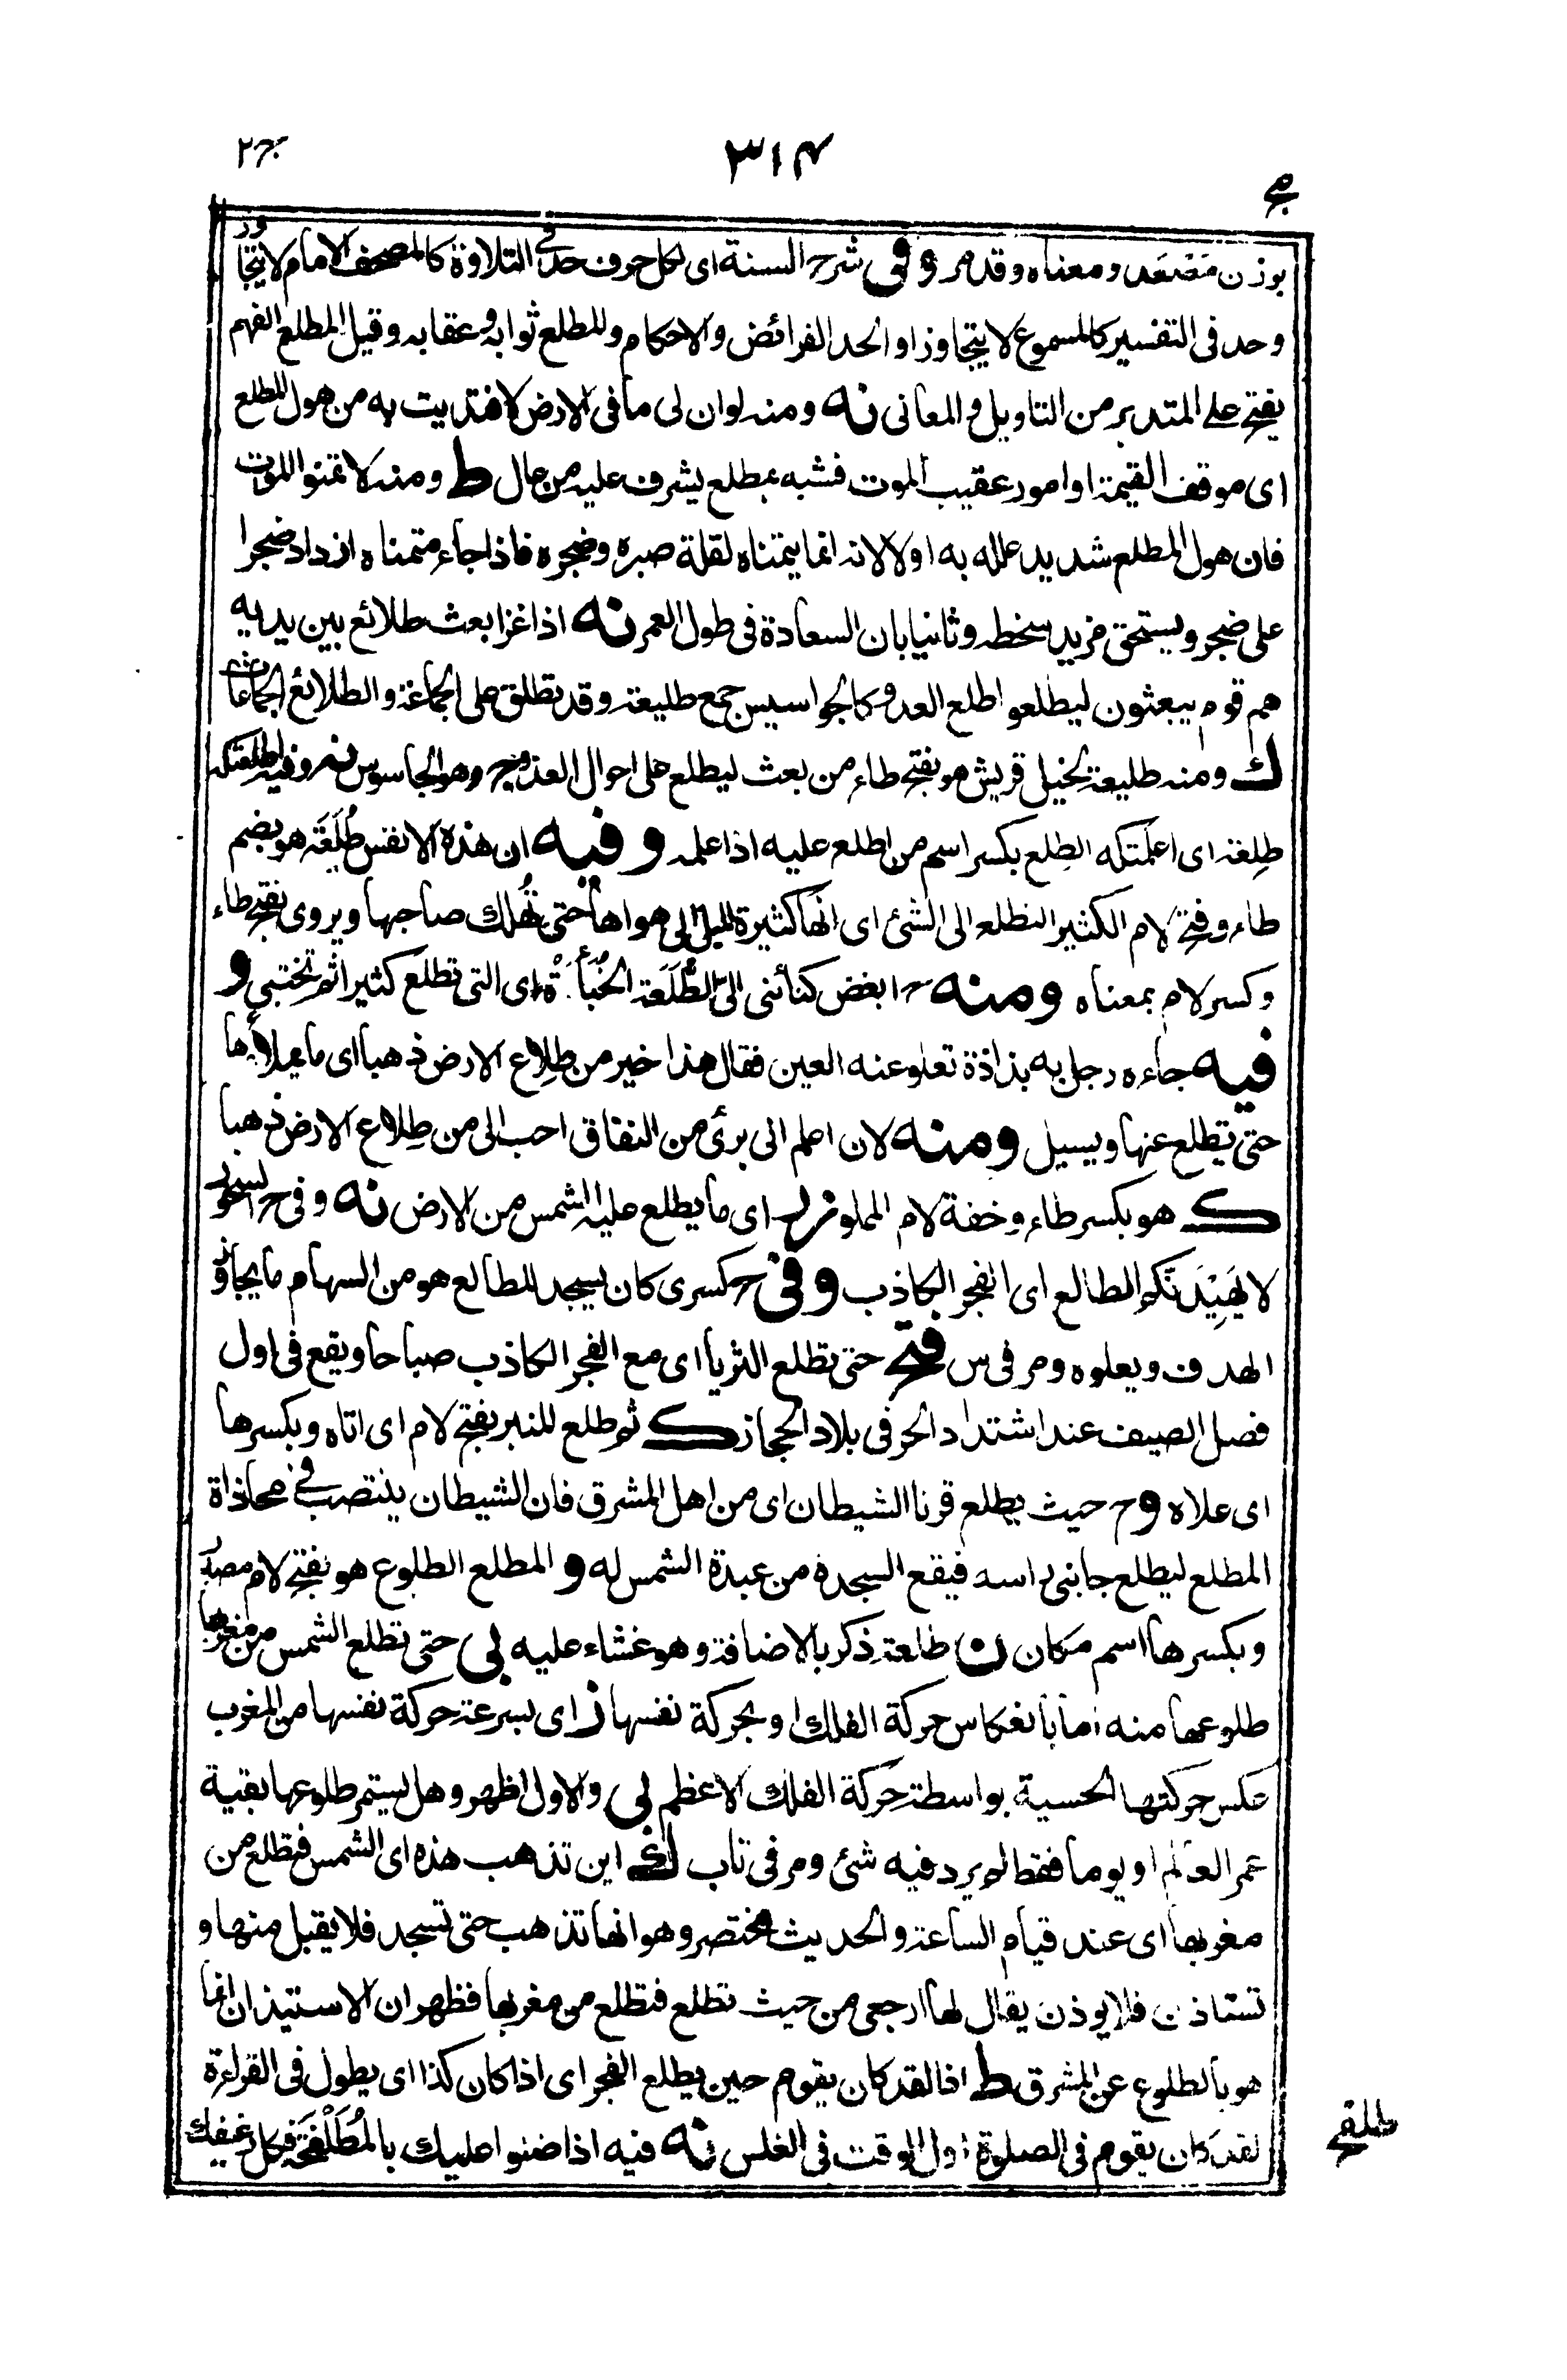 ج٢
٣١٤
بوزن مَصْعَد ومعناه وقد مر وفي شرح السنة اى لكل حرف حد فى التلاوة كالمصحف الامام لا يتجاوز
وحد فى التفسير كالمسموع لا يتجاوز او الحد الفرائض والاحكام والمطلع ثوابه وعقابه وقيل المطلع الفهم
يفتح على المتدبر من التاويل والمعانى نه ومنه لو ان لى ما فى الارض لافتديت به من هول المطلع
اى موقف القيمة او امور عقيب الموت فشبه بمطلع يشرف عليه من عال ط ومنه لا تمنوا الموت
فان هول المطلع شديد علله به اولا لانه انما يتمناه لقلة صبره وضجره فاذا جاء متمناه ازداد ضجرا
على ضجر ويستحق مزيد سخطه وثانيا بان السعادة فى طول العمر نه اذا غزا بعث طلائع بين يديه
هم قوم يبعثون ليطلعوا طلع العدو كالجواسيس جمع طليعة وقد تطلق على الجماعة والطلائع الجماعات
ك ومنه طليعة لخيل قريش هو بفتح طاء من بعث ليطلع على احوال العدو وهو الجاسوس نه وفيه اطلعتك
طِلعَه اى اعلمتكه الطِلع بكسر اسم من اطلع عليه اذا علمه وفيه ان هذه الانفس طُلَعَة هو بضم
طاء وفتح لام الكثير التطلع الى الشئ اى انها كثيرة الميل الى هواها حتى تُهلك صاحبها ويروى بفتح طاء
وكسر لام بمعناه ومنه ح ابغض كنائنى الىّ الطُّلَعَة الخُبَأَة اى التى تطلع كثيرا ثم تختبى و
فيه جاءه رجل به بذاذة تعلو عنه العين فقال هذا خير من طِلاع الارض ذهبا اى ما يملأها
حتى يطلع عنها ويسيل ومنه لان اعلم انى برئ من النفاق احب الى من طِلاع الارض ذهبا
ك هو بكسر طاء وخفة لام المملو ز اى ما يطلع عليه الشمس من الارض نه وفى ح السحور
لا يَهِيْدَنَّكم الطالع اى الفجر الكاذب وفى ح كسرى كان يسجد للطالع هو من السهام ما يجاوز
الهدف ويعلوه ومر فى س فتح حتى تطلع الثريا اى مع الفجر الكاذب صباحا ويقع فى اول
فصل الصيف عند اشتداد الحر فى بلاد الحجاز ك ثم طلع المنبر بفتح لام اى اتاه وبكسرها
اى علاه وح حيث يطلع قرنا الشيطان اى من اهل المشرق فان الشيطان ينتصب فى محاذاة
المطلع ليطلع جانبى راسه فيقع السجدة من عبدة الشمس له و المطلع الطلوع هو بفتح لام مصدر
وبكسرها اسم مكان ن طالعة ذكر بالاضافة وهو غشاء عليه لى حتى تطلع الشمس من مغربها
طلوعها منه اما بانعكاس حركة الفلك او بحركة نفسها ز اى بسرعة حركة نفسها من المغرب
عكس حركتها الحسية بواسطة حركة الفلك الاعظم لى والاول اظهر وهل يستمر طلوعها بقية
عمر العالم او يوما فقط لم يرد فيه شئ ومر فى تاب اين تذهب هذه اى الشمس فتطلع من
مغربها اى عند قيام الساعة والحديث مختصر وهو انها تذهب حتى تسجد فلا يقبل منها و
تستاذن فلا يوذن يقال لها ارجعى من حيث تطلع فتطلع من مغربها فظهر ان الاستيذان انما
هو بالطلوع عن المشرق ط افا لقد كان يقوم حين يطلع الفجر اى اذا كان كذا اى يطول فى القراءة
لقد كان يقوم فى الصلوة اول الوقت فى الغلس نه فيه اذا ضنوا عليك بالمُطَلْفَحَة فكل رغيفك
طلفح